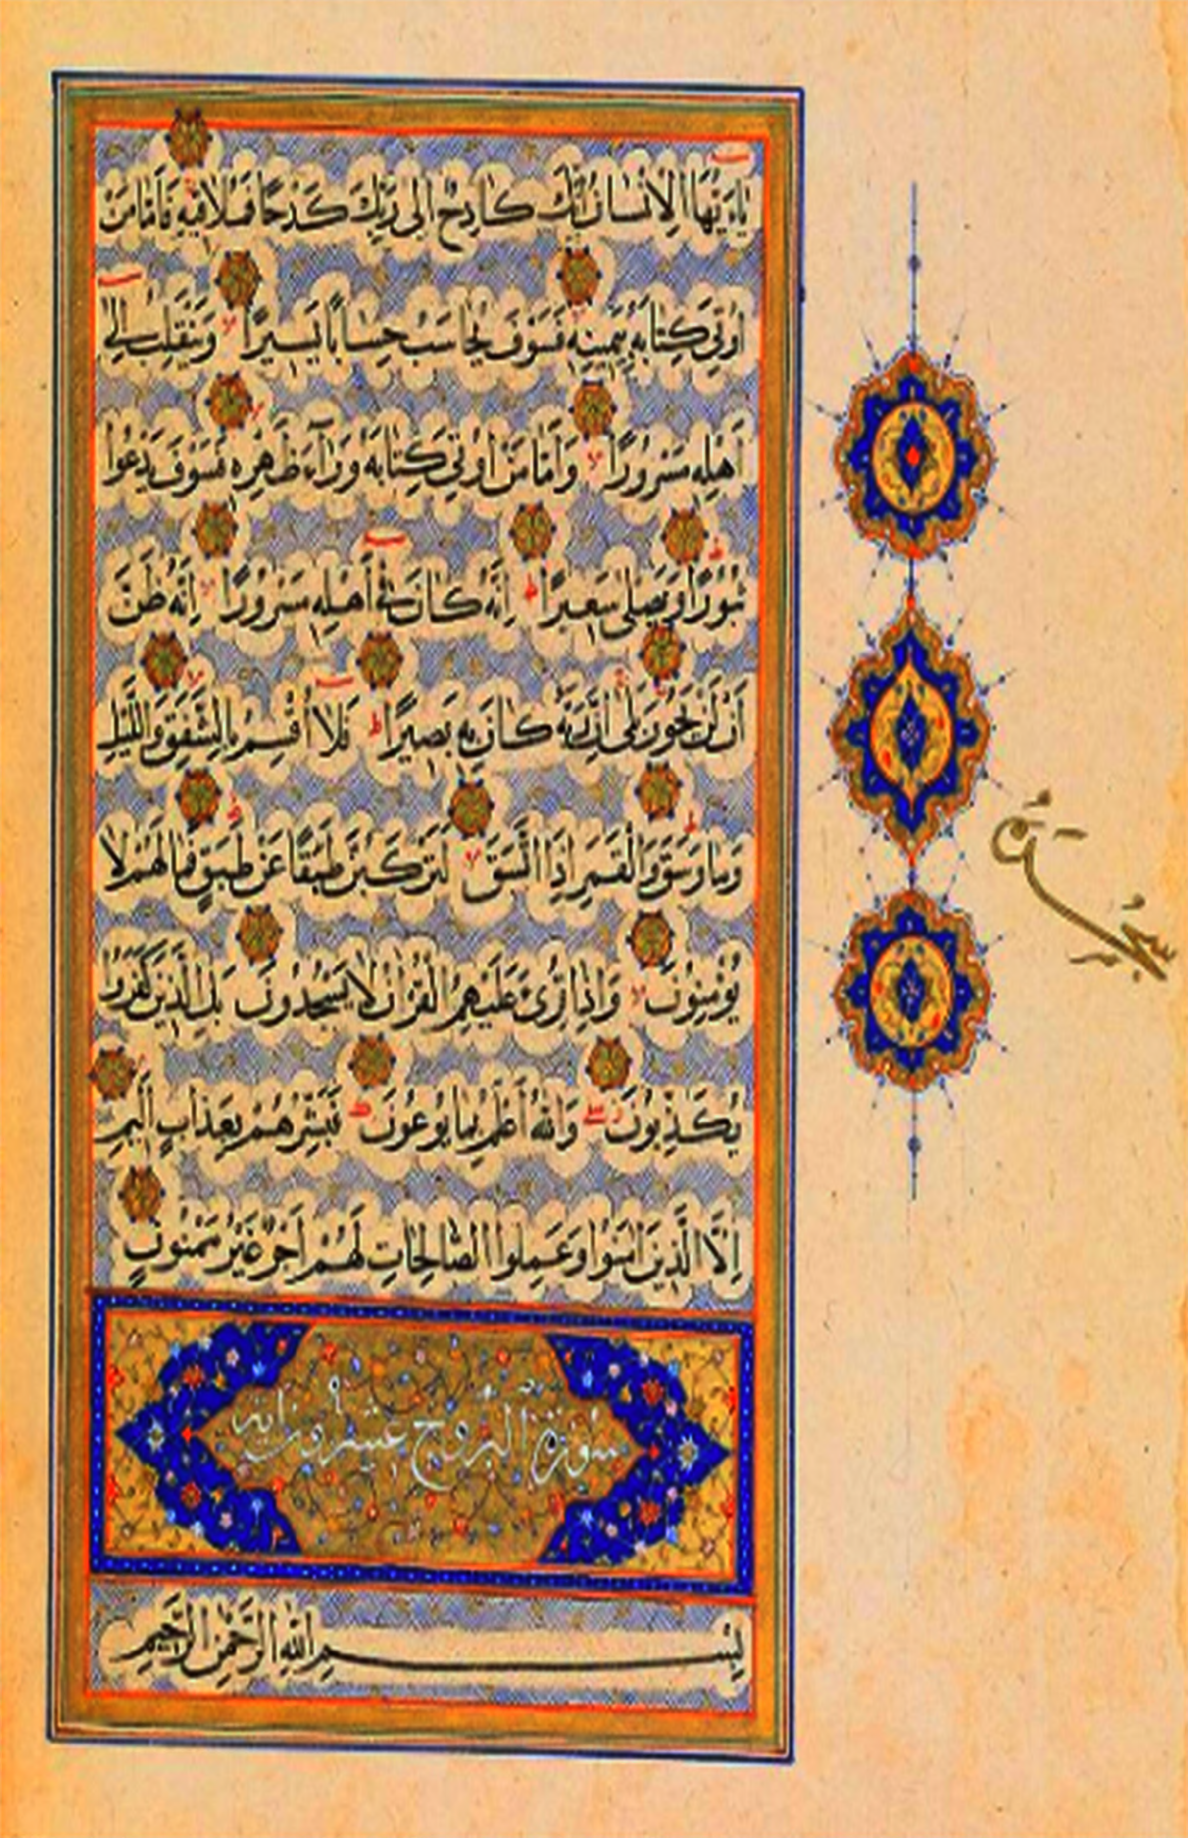 يَاءَيُّهَا الْاِنْسَانُ اِنَّكَ كَادِحٌ اِلٰى رَبِّكَ كَدْحًا فَمُلَاقِيهِ فَاَمَّا مَنْ
اُوتِيَ كِتَابَهُ بِيَمِينِهِ فَسَوْفَ يُحَاسَبُ حِسَابًا يَسِيرًا وَيَنْقَلِبُ اِلٰى
اَهْلِهِ مَسْرُورًا وَاَمَّا مَنْ اُوتِيَ كِتَابَهُ وَرَآءَ ظَهْرِهِ فَسَوْفَ يَدْعُوا
ثُبُورًا وَيَصْلٰى سَعِيرًا اِنَّهُ كَانَ فِي اَهْلِهِ مَسْرُورًا اِنَّهُ ظَنَّ
اَنْ لَنْ يَحُورَ بَلٰى اِنَّ رَبَّهُ كَانَ بِهِ بَصِيرًا فَلَا اُقْسِمُ بِالشَّفَقِ وَاللَّيْلِ
وَمَا وَسَقَ وَالْقَمَرِ اِذَا اتَّسَقَ لَتَرْكَبُنَّ طَبَقًا عَنْ طَبَقٍ فَمَا لَهُمْ لَا
يُؤْمِنُونَ وَاِذَا قُرِئَ عَلَيْهِمُ الْقُرْاٰنُ لَا يَسْجُدُونَ بَلِ الَّذِينَ كَفَرُوا
يُكَذِّبُونَ وَاللّٰهُ اَعْلَمُ بِمَا يُوعُونَ فَبَشِّرْهُمْ بِعَذَابٍ اَلِيمٍ
اِلَّا الَّذِينَ اٰمَنُوا وَعَمِلُوا الصَّالِحَاتِ لَهُمْ اَجْرٌ غَيْرُ مَمْنُونٍ
سورة البروج عشرون اية
بِسْمِ اللّٰهِ الرَّحْمٰنِ الرَّحِيمِ